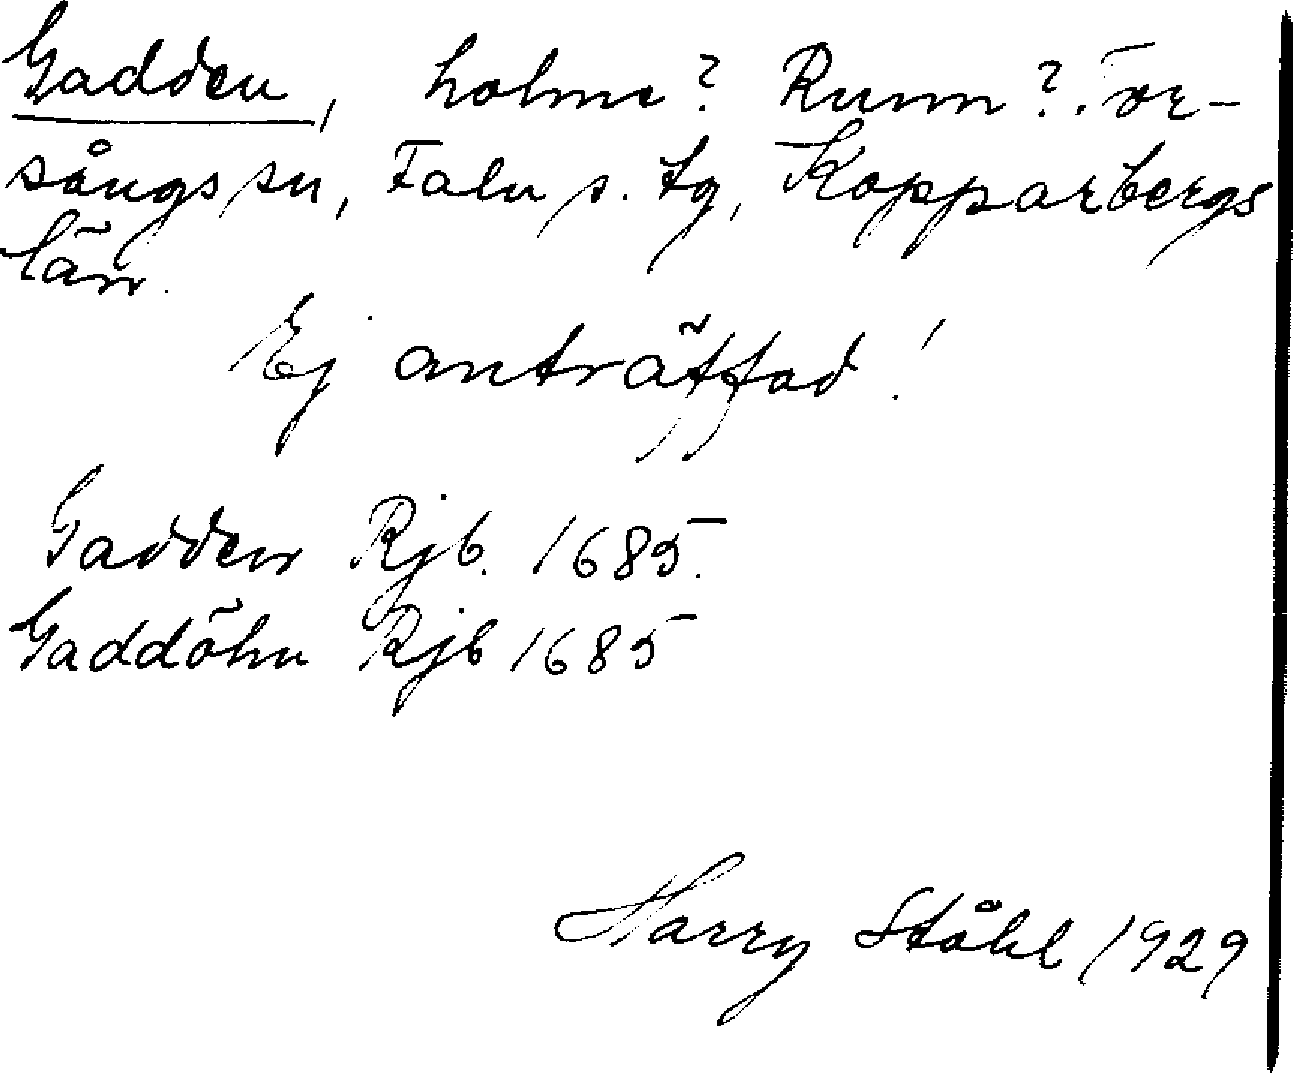 Gadden, holme? Runn?. Tor-
sångs sn, Falu s. tg, Kopparbergs
län.
Ej anträffad!
Gadden Rjb. 1685.
Gaddöhn Rjb 1685
Harry Ståhl 1929